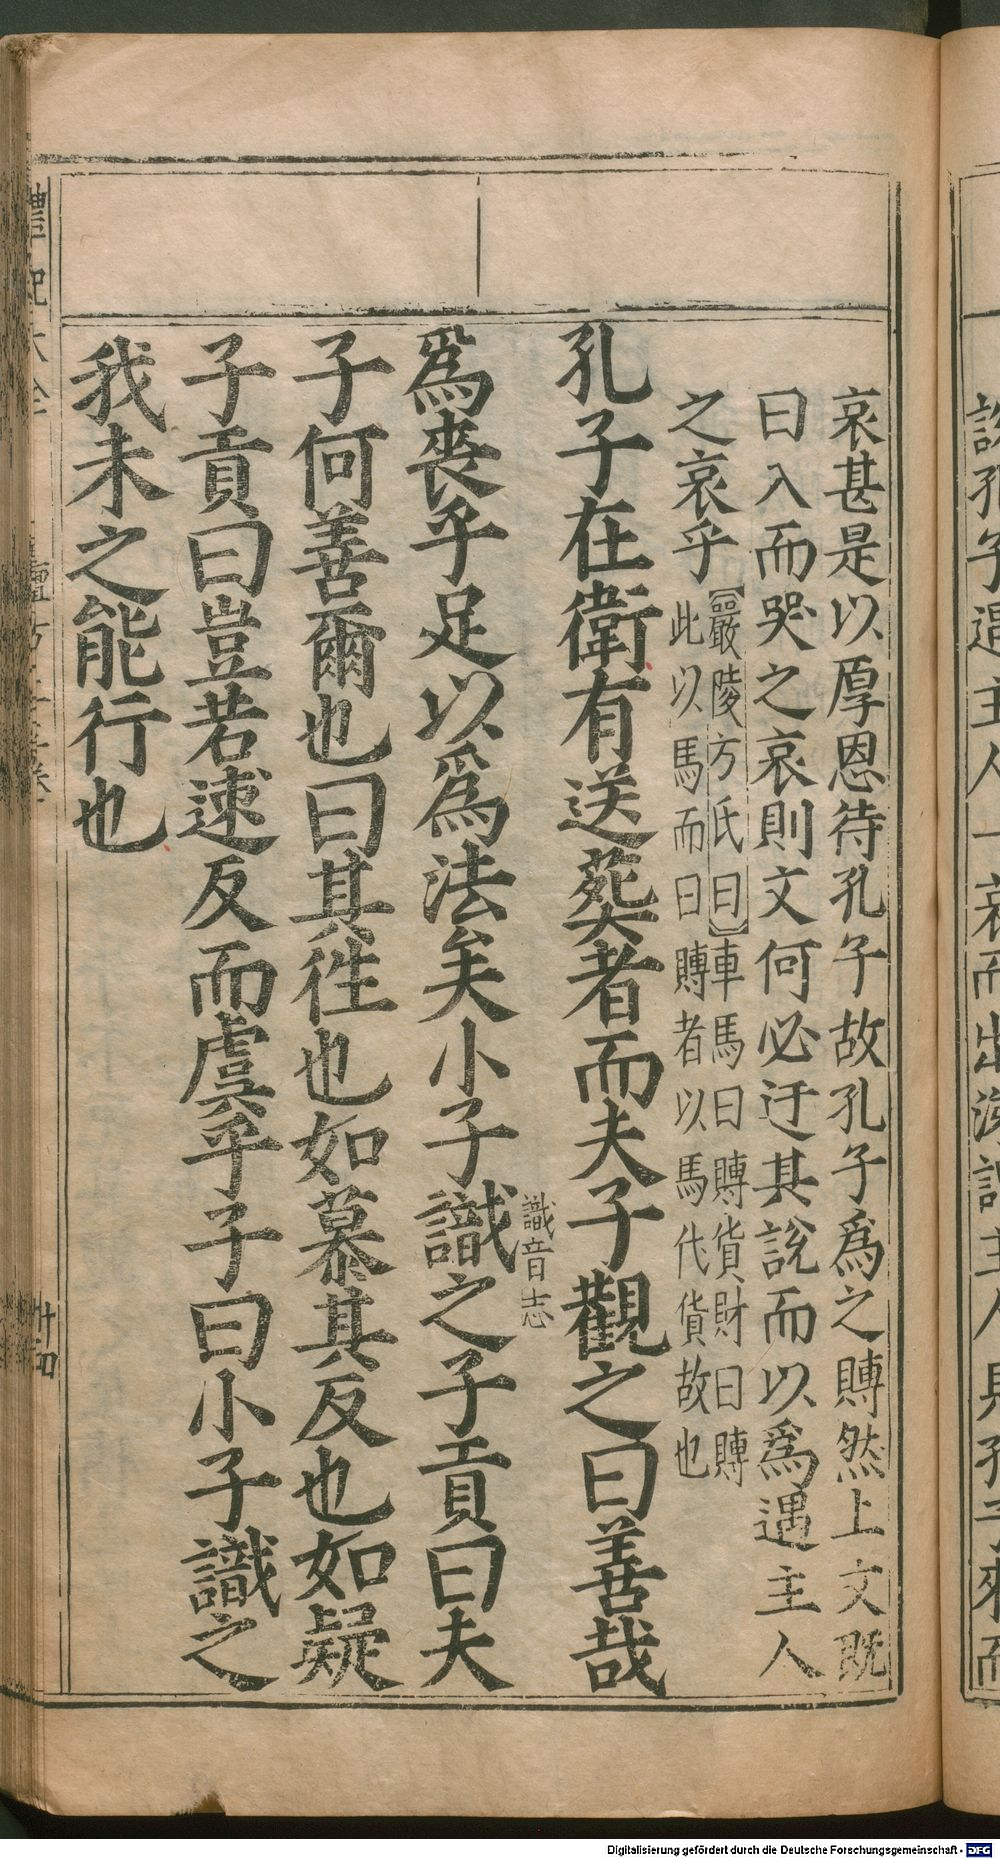 哀甚是以厚恩待孔子故孔子爲之賻然上文既
曰入而哭之哀則文何必迂其說而以爲遇主人
之哀乎
【嚴陵方氏曰】車馬曰賻貨財曰賻
此以馬而曰賻者以馬代貨故也
孔子在衛有送葬者而夫子觀之曰善哉
爲喪乎足以爲法矣小子識之子貢曰夫
識音志
子何善爾也曰其徃也如慕其反也如疑
子貢曰豈若速反而虞乎子曰小子識之
我未之能行也
禮記大全
卅四
Digitalisierung gefördert durch die Deutsche Forschungsgemeinschaft - DFG